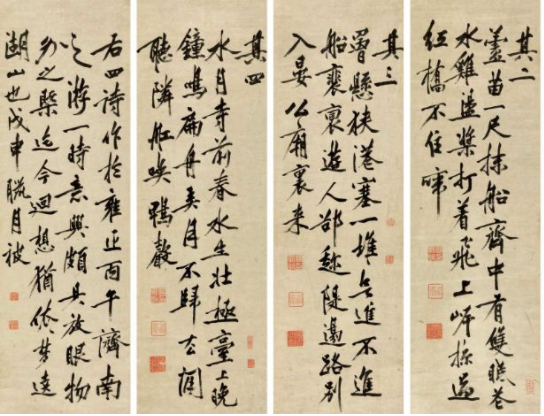 其二
蘆苗一尺抹船齊中有雙
水雞盪槳打着飛上岸掠過
紅橋不住啼
其三
罾懸狹港塞一堆進不進
船裵遊人都趁隄邊路別
入晏公廟裏來
其四
水月寺前春水生北極臺上晚
鐘鳴扁舟弄月不歸去閒
聽隣舡喚鴨聲
右四詩作於雍正丙午濟南
之游一時意興頗具放眼物
外之槩迄今迴想猶依夢遶
湖山也戊申臘月被